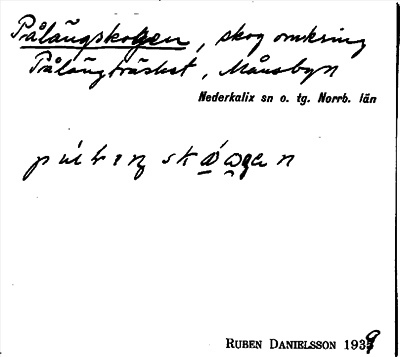 Pålängskogen, skog omkring
Pålängträsket, Månsbyn
Nederkalix sn o. tg. Norrb. län
RUBEN DANIELSSON 1939